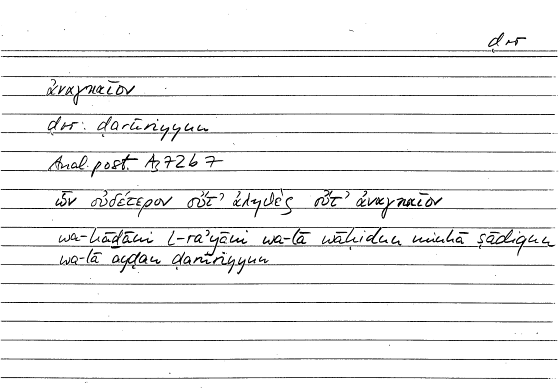 ḍrr
ἀναγκαῖον
ḍrr: ḍarūriyyun
Anal. post. A3 72b7
ὧν οὐδέτερον οὔτ' ἀληθὲς οὔτ' ἀναγκαῖον
wa-hāḏāni l-ra'yāni wa-lā wāḥidun minhā ṣādiqun
wa-lā ayḍan ḍarūriyyun